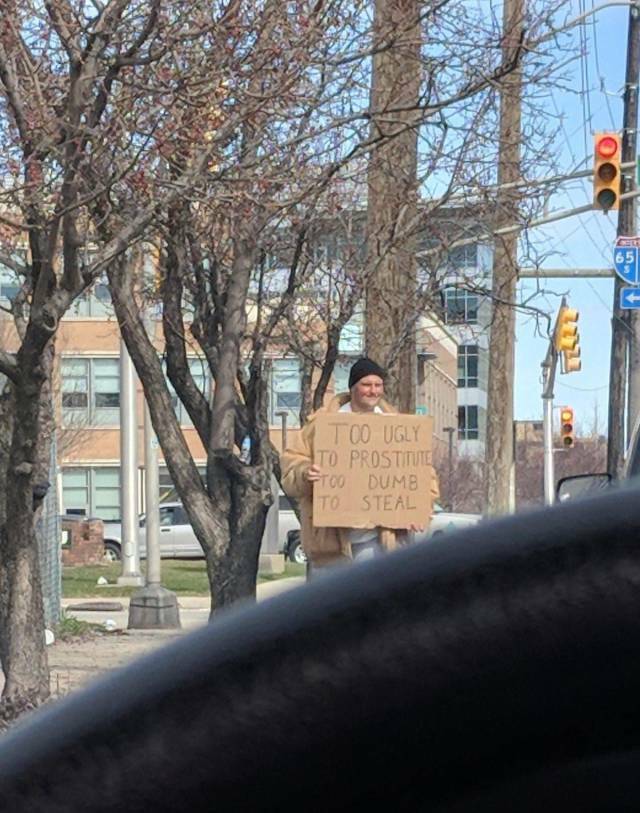 TOO UGLY
TO PROSTITUTE
TOO DUMB
TO STEAL
INTER
65
S